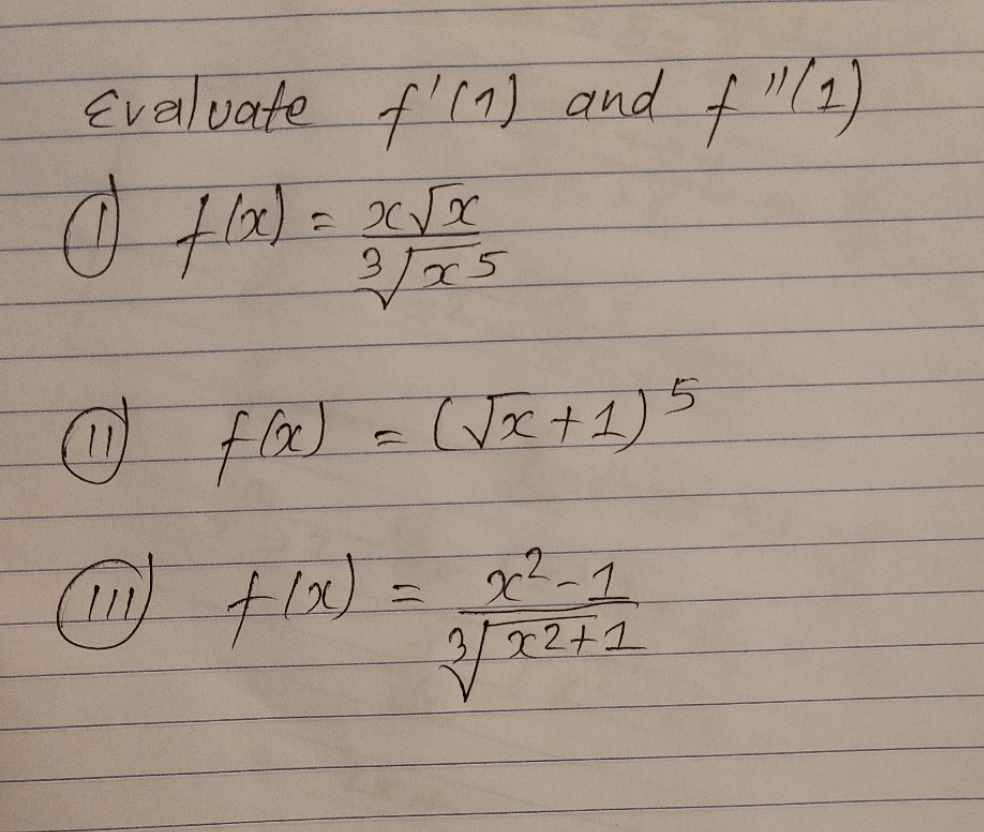 Evaluate f'(1) and f''(1)
(I) f(x) = x√x / ∛x⁵
(II) f(x) = (√x + 1)⁵
(III) f(x) = x² - 1 / ∛x² + 1